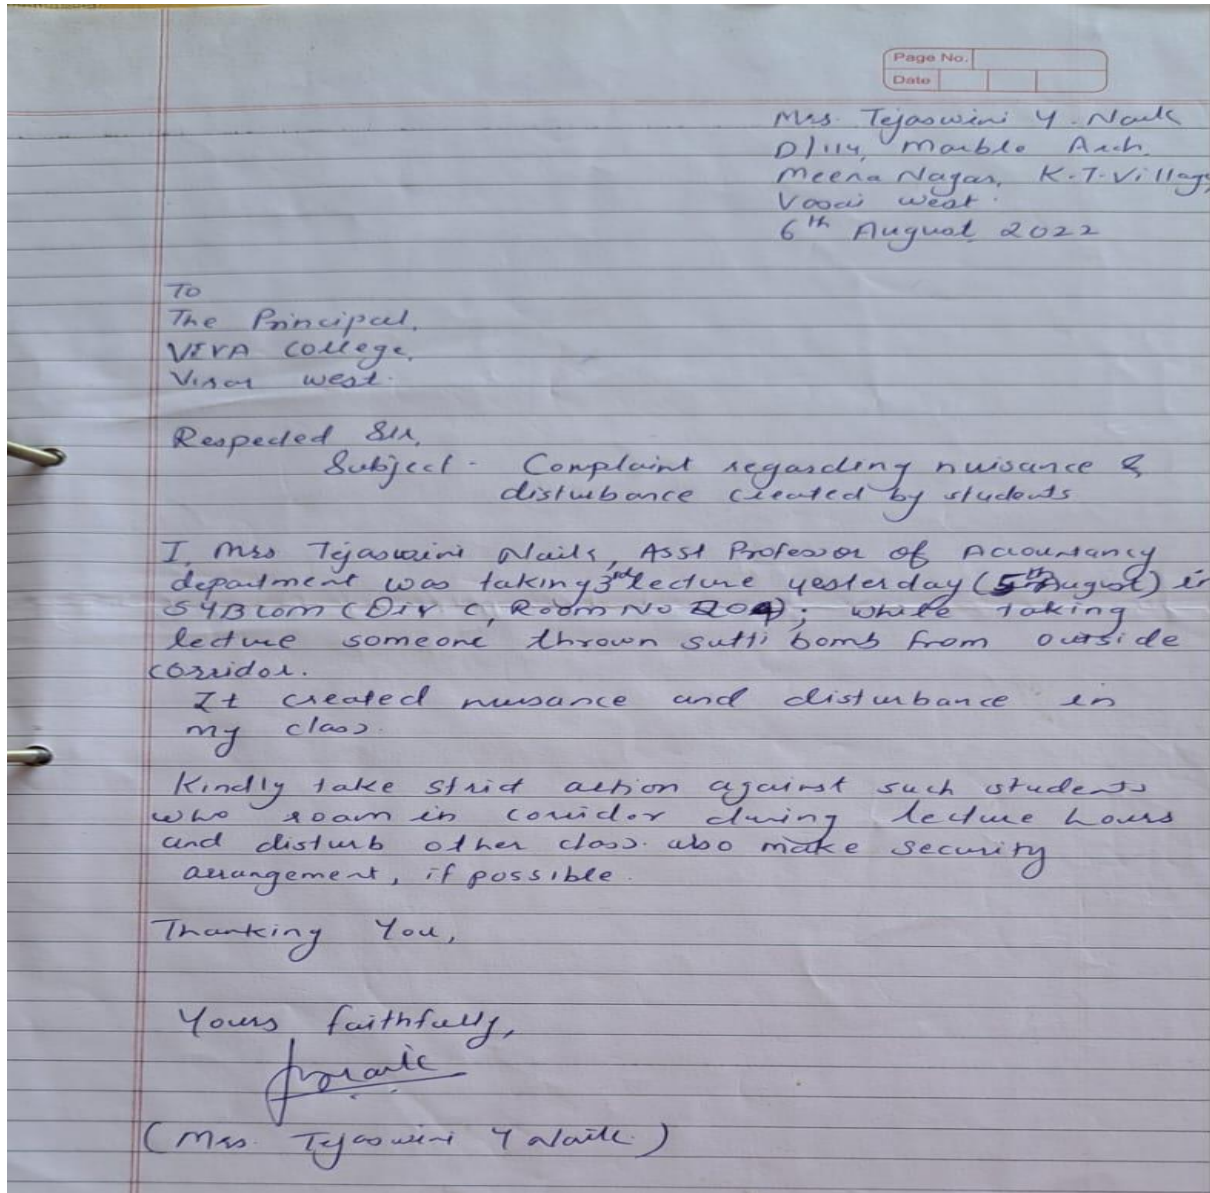 Page No.
Date
Mrs. Tejaswini Y. Naik
D/114, Marble Arch.
Meena Nagar, K.T. Village,
Vasai west.
6th August, 2022
To
The Principal,
VIVA College,
Virar west.
Respected Sir,
Subject - Complaint regarding nuisance &
disturbance created by students
I, Mrs Tejaswini Naik, Asst Professor of Accountancy
department was taking 3rd lecture yesterday (5th August) in
SYBCom (Div C, Room No 204); while taking
lecture someone thrown sutli bomb from outside
corridor.
It created nusance and disturbance in
my class.
Kindly take strict action against such students
who roam in corridor during lecture hours
and disturb other class. also make security
arrangement, if possible.
Thanking You,
Yours faithfully,
Naik
(Mrs. Tejaswini Y Naik.)